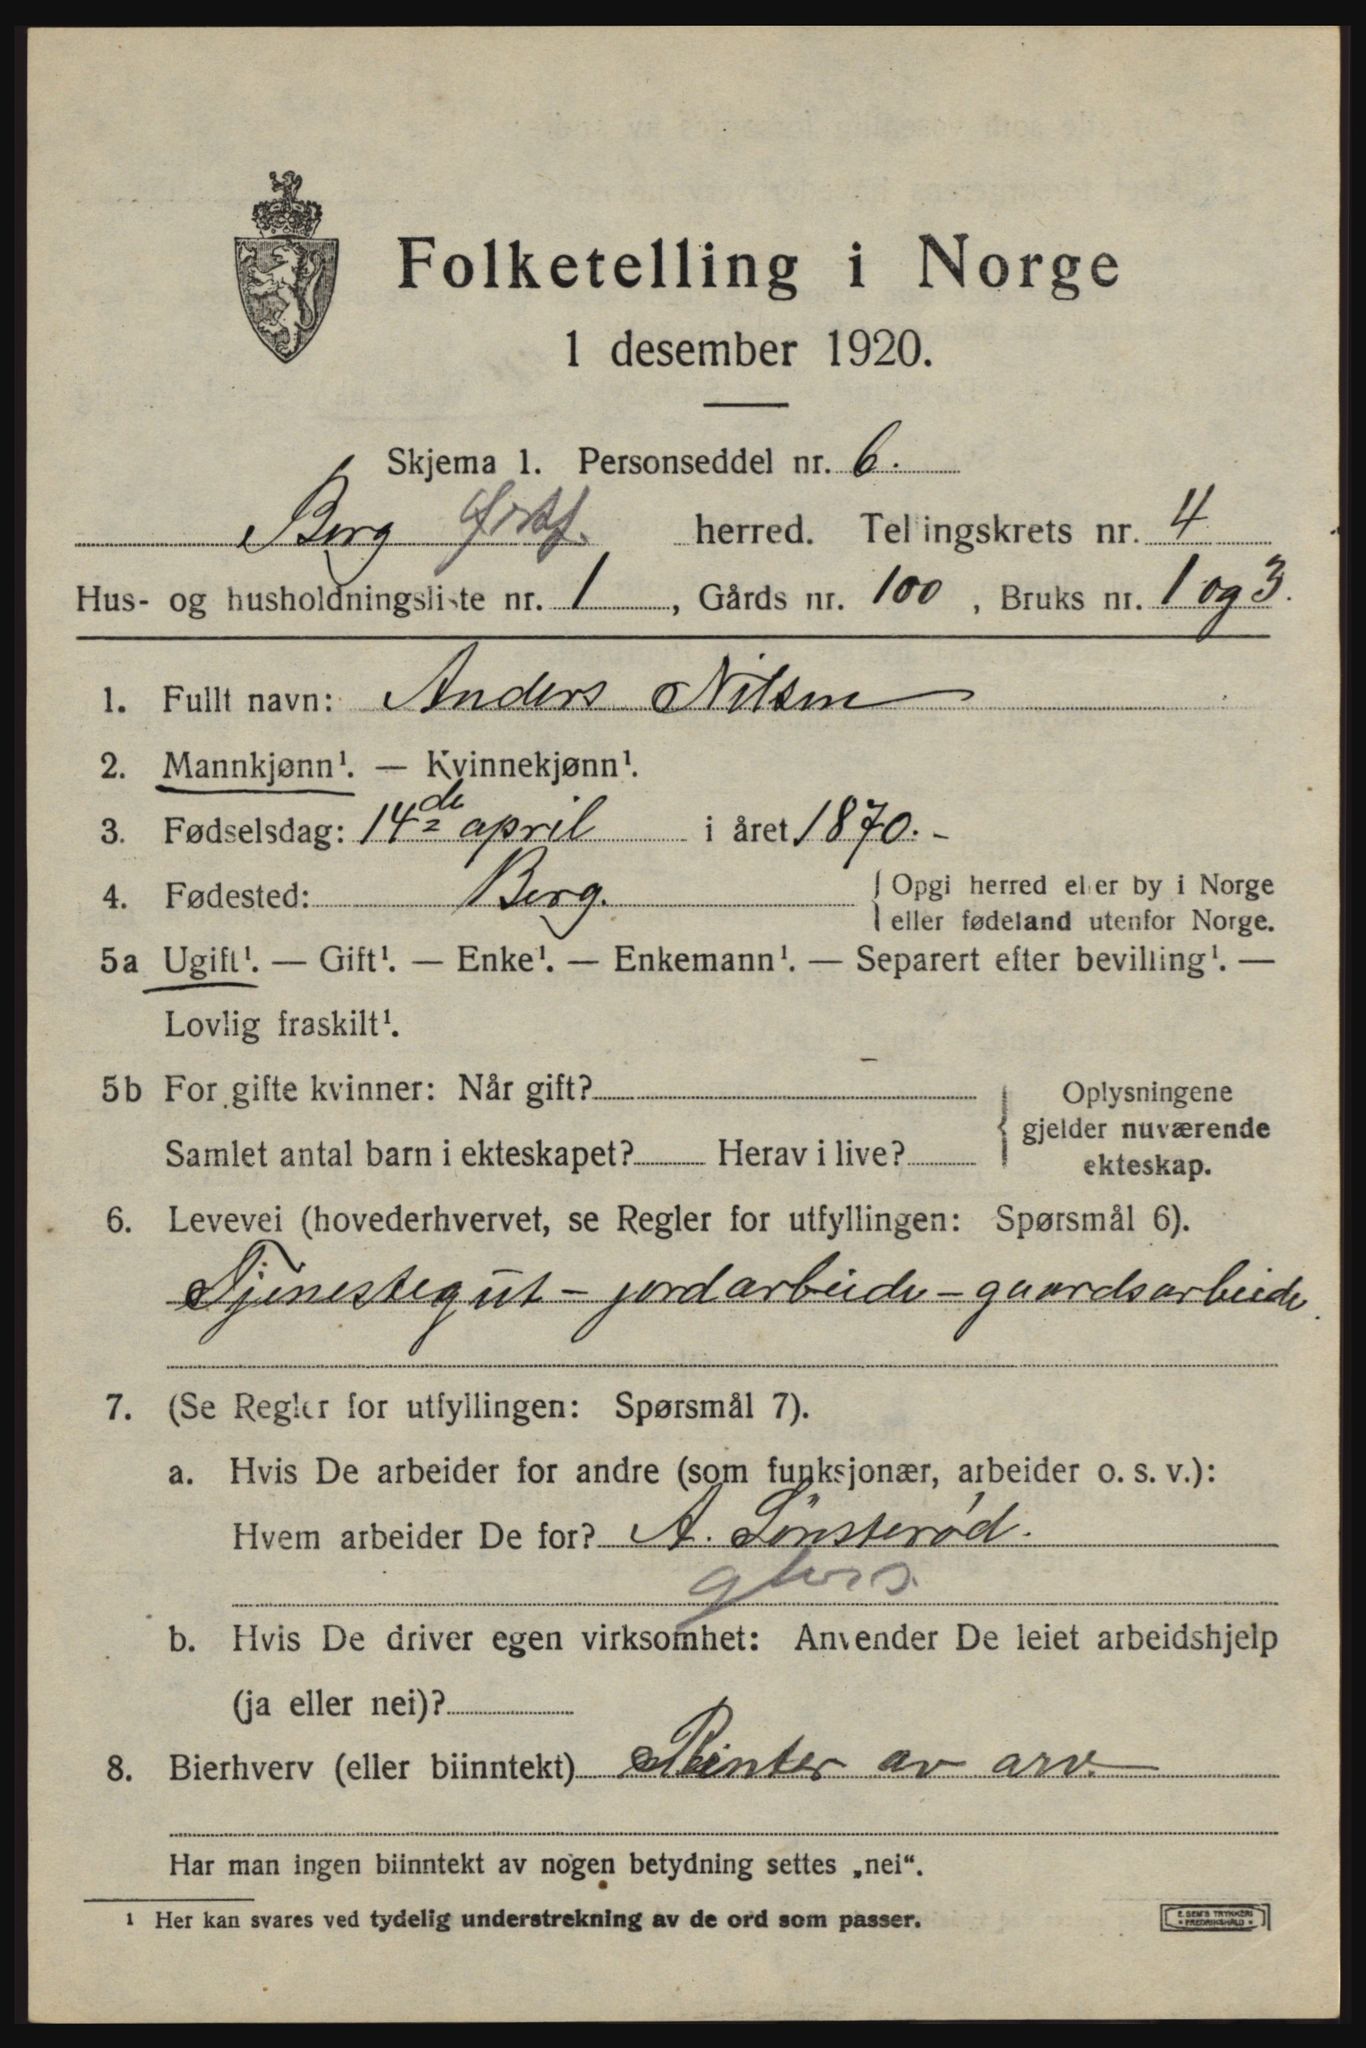 Folketelling i Norge
1 desember 1920.
Skjema 1. Personseddel nr. 6.
Berg Østf. herred. Tellingskrets nr. 4
Hus- og husholdningsliste nr. 1, Gårds nr. 100, Bruks nr. 1 og 3.
1. Fullt navn: Anders Nilsen
2. Mannkjønn¹. — Kvinnekjønn¹.
3. Fødselsdag: 14de april i året 1870.-
4. Fødested: Berg. { Opgi herred eller by i Norge
eller fødeland utenfor Norge.
5a Ugift¹. — Gift¹. — Enke¹. — Enkemann¹. — Separert efter bevilling¹. —
Lovlig fraskilt¹.
5b For gifte kvinner: Når gift? { Oplysningene
gjelder nuværende
Samlet antal barn i ekteskapet? Herav i live?
ekteskap.
6. Levevei (hovederhvervet, se Regler for utfyllingen: Spørsmål 6).
Tjenestegut - jordarbeide - gaardsarbeide.
7. (Se Regler for utfyllingen: Spørsmål 7).
a. Hvis De arbeider for andre (som funksjonær, arbeider o. s. v.):
Hvem arbeider De for? A. Lönsterød.
b. Hvis De driver egen virksomhet: Anvender De leiet arbeidshjelp
(ja eller nei)?
8. Bierhverv (eller biinntekt) Renter av arv.
Har man ingen biinntekt av nogen betydning settes „nei“.
¹ Her kan svares ved tydelig understrekning av de ord som passer.
E. SEM'S TRYKKERI
FREDRIKSHALD